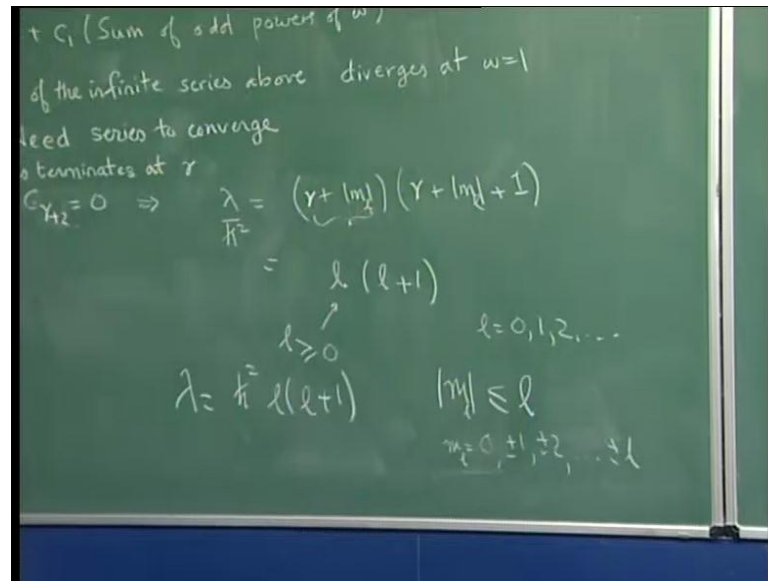 + C₁ (Sum of odd powers of w)
of the infinite series above diverges at w=1
need series to converge
s terminates at r
C_{r+2} = 0 ⇒ λ/ħ² = (r + |m_l|) (r + |m_l| + 1)
= l (l+1)
l ≥ 0 l = 0, 1, 2, ....
λ = ħ² l(l+1) |m_l| ≤ l
m_l = 0, ±1, ±2, ... ±l